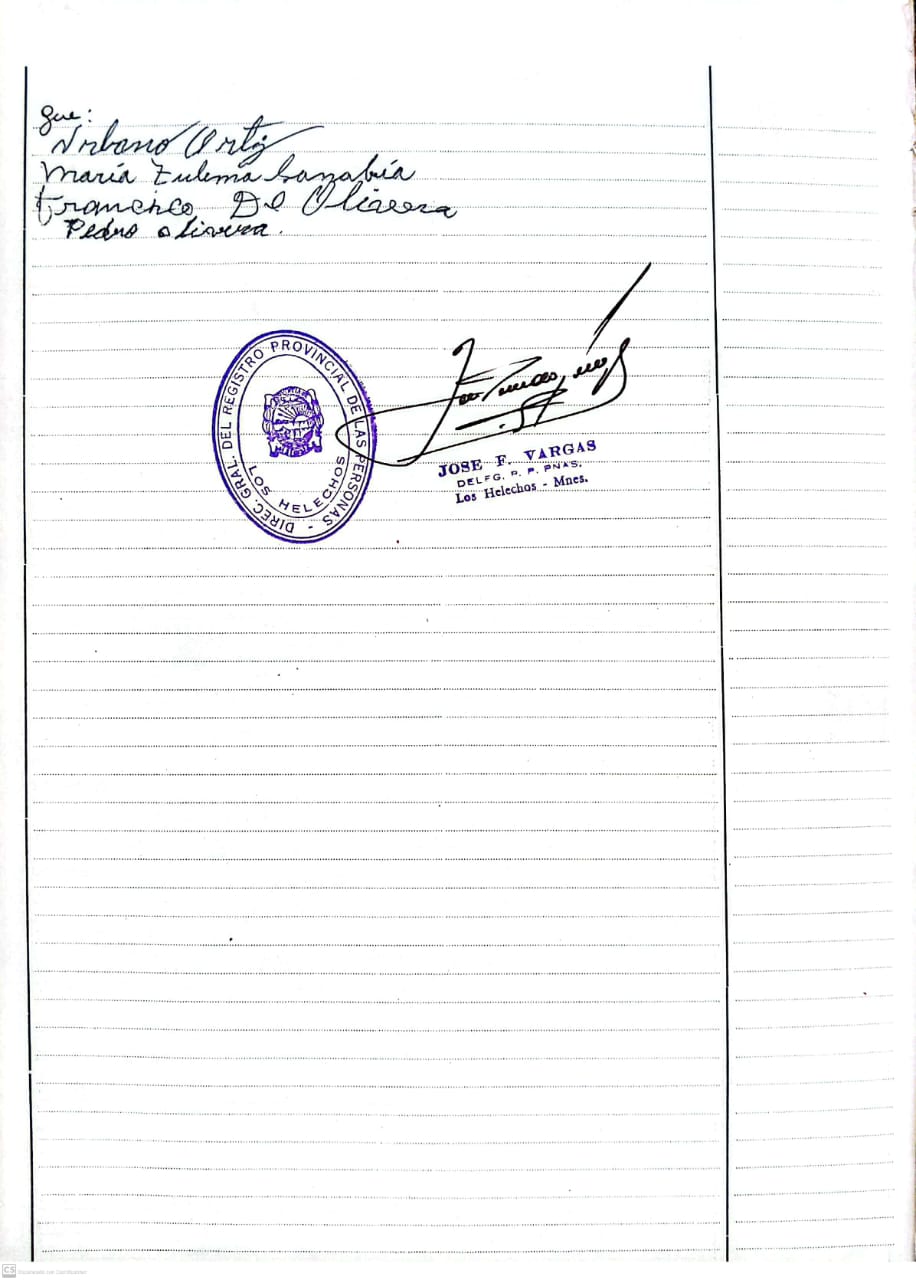 que:
Urbano Ortiz
María Zulema Sanabia
Francisco De Oliveera
Pedro olivera.
DIREC. GRAL. DEL REGISTRO PROVINCIAL DE LAS PERSONAS -
LOS HELECHOS
JOSE F. VARGAS
DELEG. R. P. PNAS.
Los Helechos - Mnes.
CS Escaneado con CamScanner